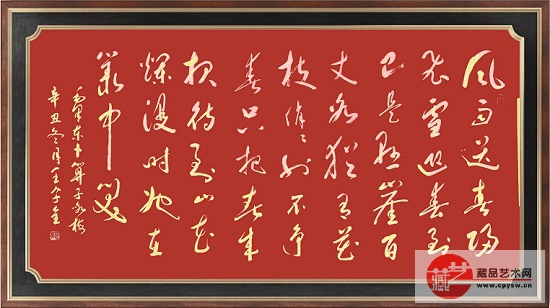 风雨送春归
飞雪迎春到
已是悬崖百
丈冰犹有花
枝俏俏也不争
春只把春来
报待到山花
烂漫时她在
丛中笑
毛泽东卜算子咏梅
辛丑冬月
藏艺
藏品艺术网
www.cpysw.cn